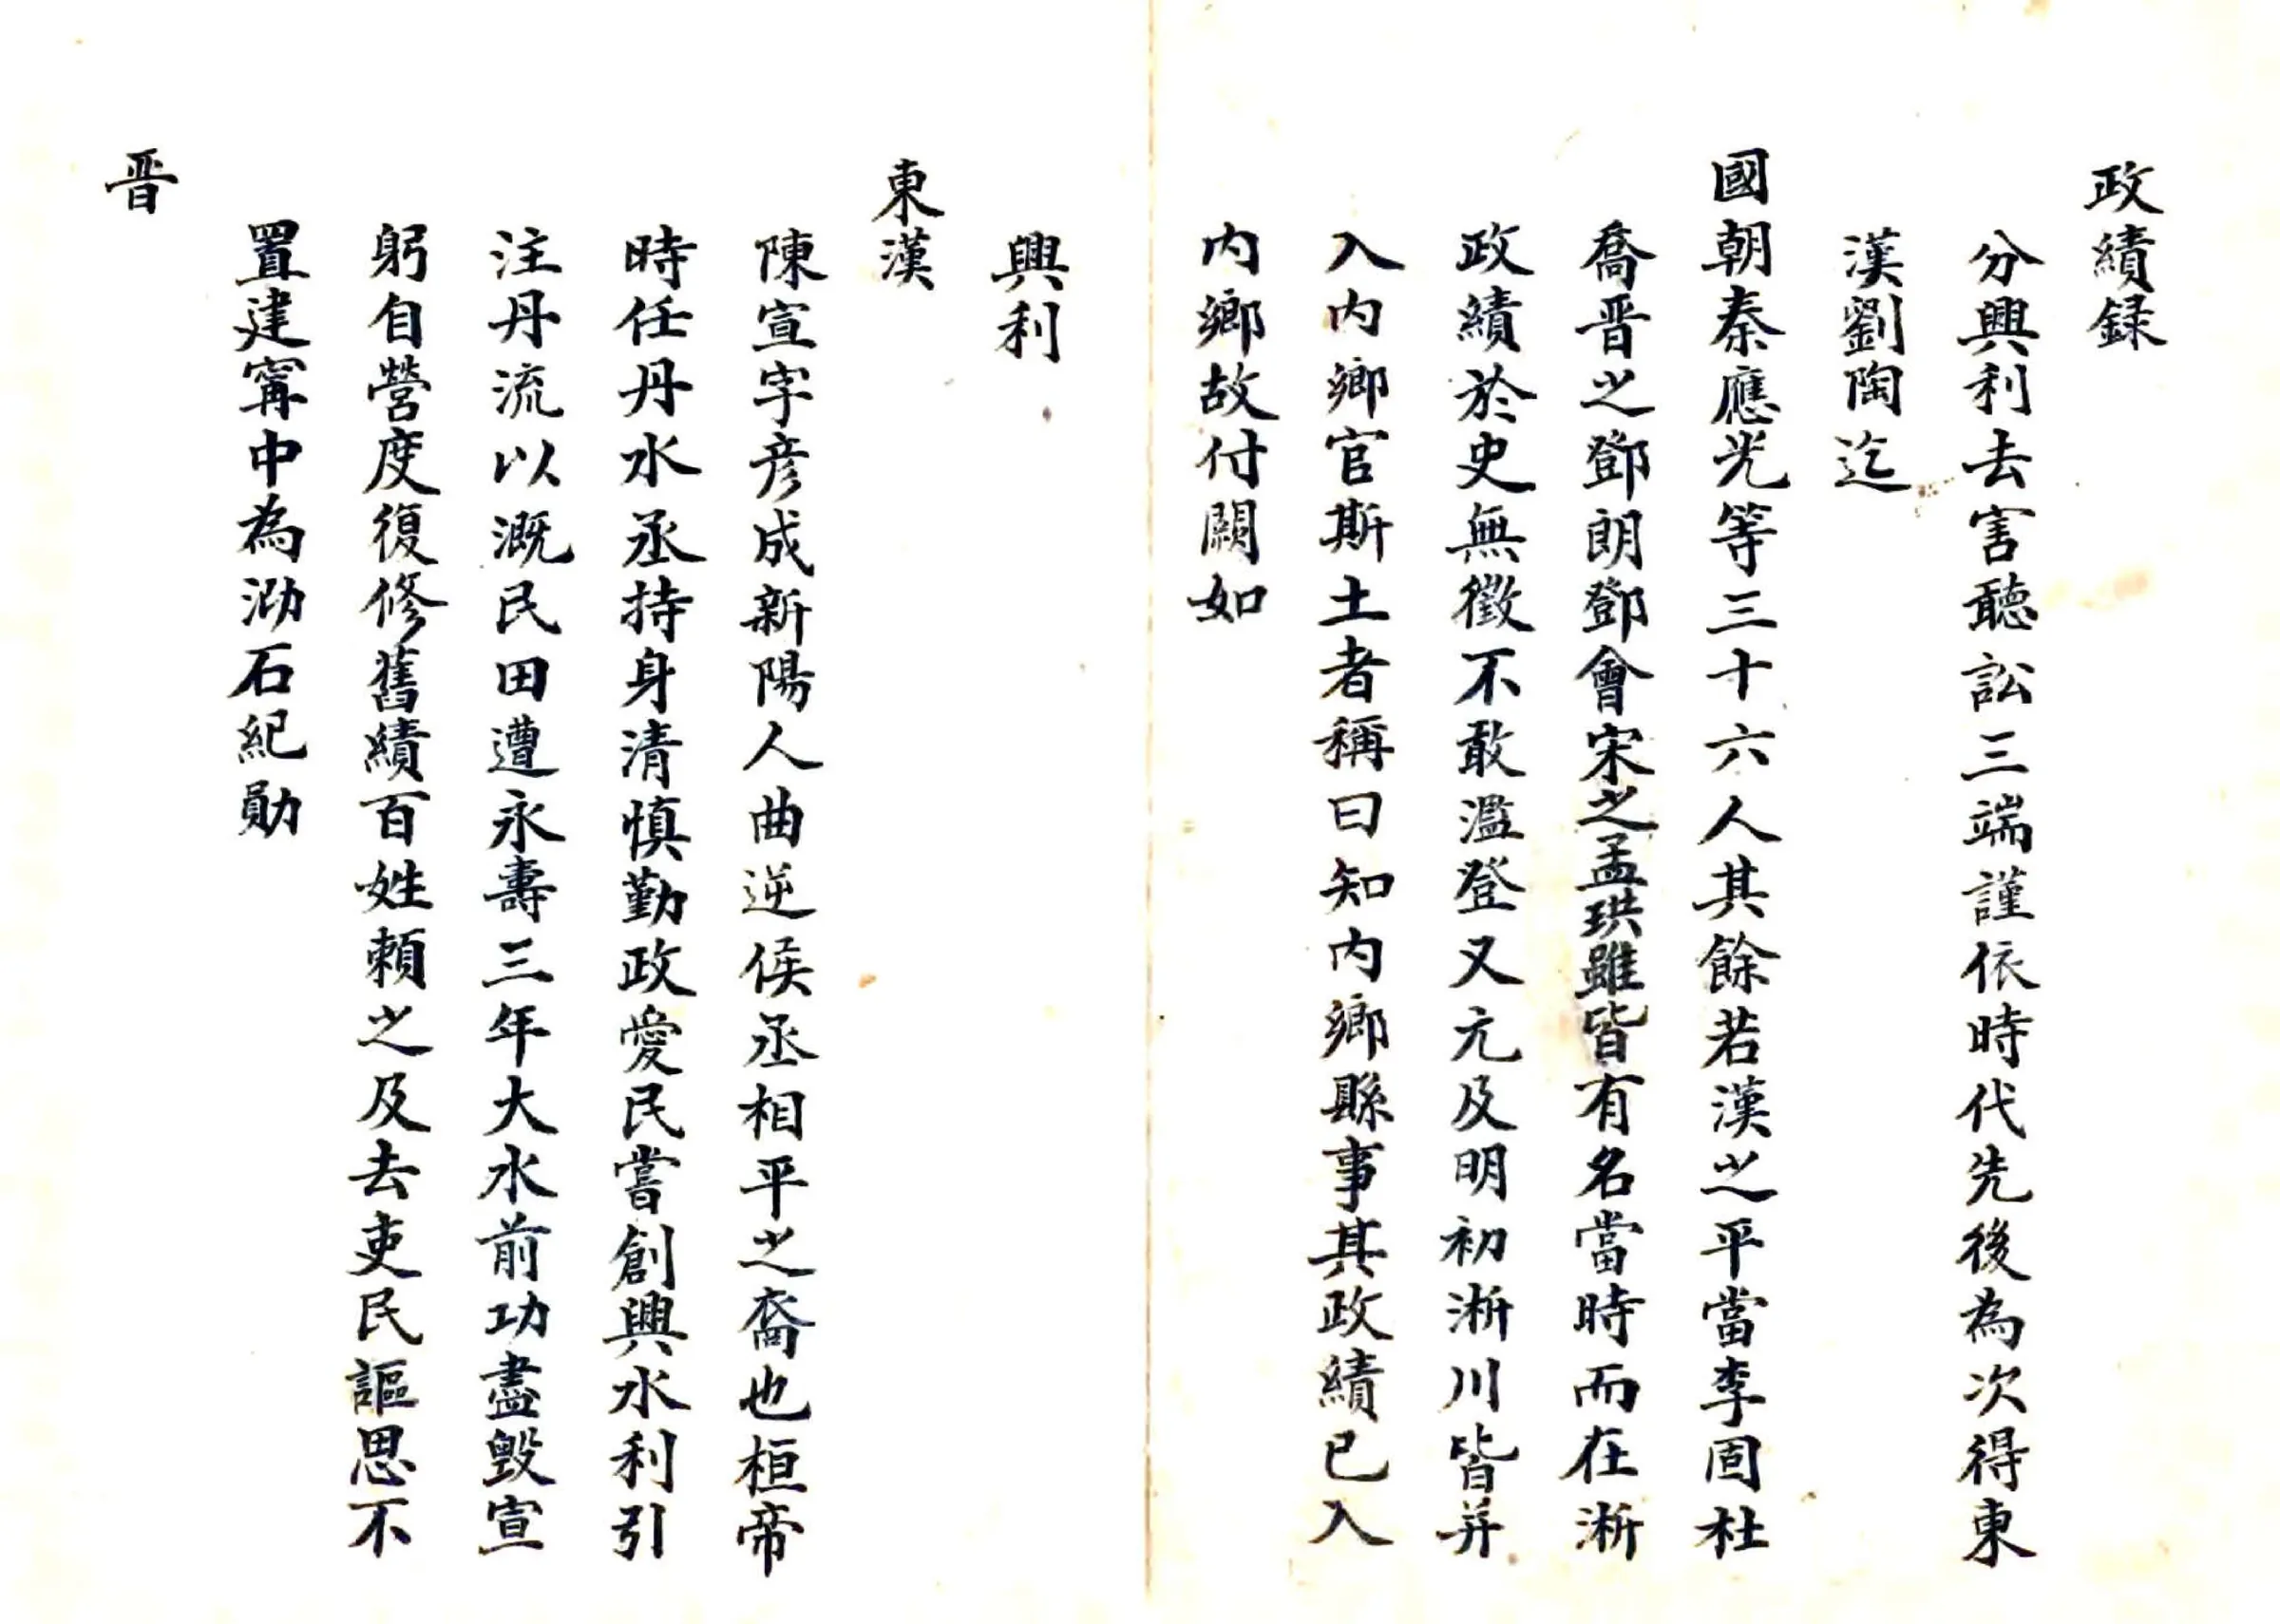 政績録
分興利去害聽訟三端謹依時代先後為次得東
漢劉陶迄
國朝秦應光等三十六人其餘若漢之平當李固杜
喬晋之鄧朗鄧會宋之孟珙雖皆有名當時而在淅
政績於史無徵不敢濫登又元及明初淅川皆并
入内鄉官斯土者稱曰知内鄉縣事其政績已入
内鄉故付闕如
興利
東漢
陳宣字彦成新陽人曲逆侯丞相平之裔也桓帝
時任丹水丞持身清慎勤政愛民嘗創興水利引
注丹流以溉民田遭永壽三年大水前功盡毀宣
躬自營度復修舊績百姓頼之及去吏民謳思不
置建寗中為泐石紀勛
晋